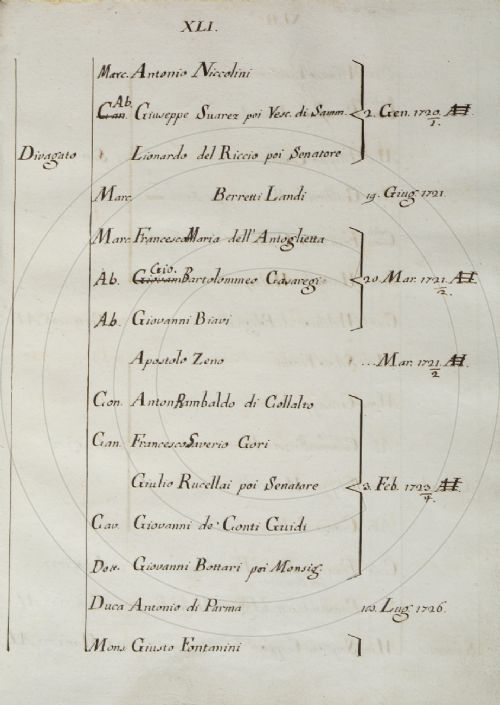 XLI.
Marc. Antonio Niccolini
Can. Ab. Giuseppe Suarez poi Vesc. di Samm. 2. Gen. 1720/1.
Divagato Lionardo del Riccio poi Senatore
Marc. Berretti Landi 19. Giug. 1721.
Marc. Francesco Maria dell'Antoglietta
Ab. Giovanni Gio. Bartolommeo Casaregi 20. Mar. 1721/2.
Ab. Giovanni Biavi
Apostolo Zeno ... Mar. 1721/2
Con. Anton Rambaldo di Collalto
Can. Francesco Saverio Gori
Giulio Rucellai poi Senatore 3. Feb. 1723/4.
Cav. Giovanni de' Conti Guidi
Dott. Giovanni Bottari poi Monsig.
Duca Antonio di Parma Lug. 1726.
Mons. Giusto Fontanini